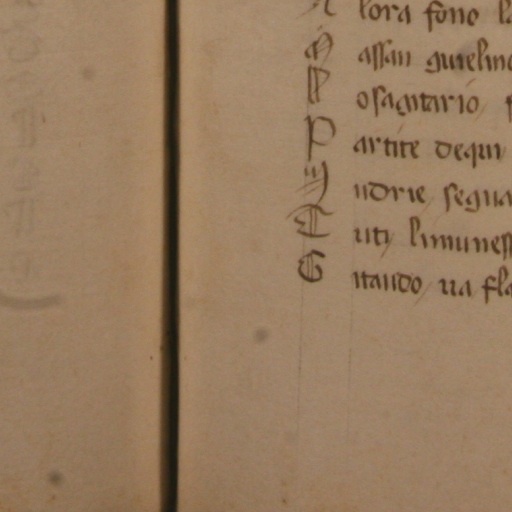 A llora fono la
M assan guielmo
P osagitario, f
P artite dequi
M udrie, segua
T uti limuness
G itando, ua fla